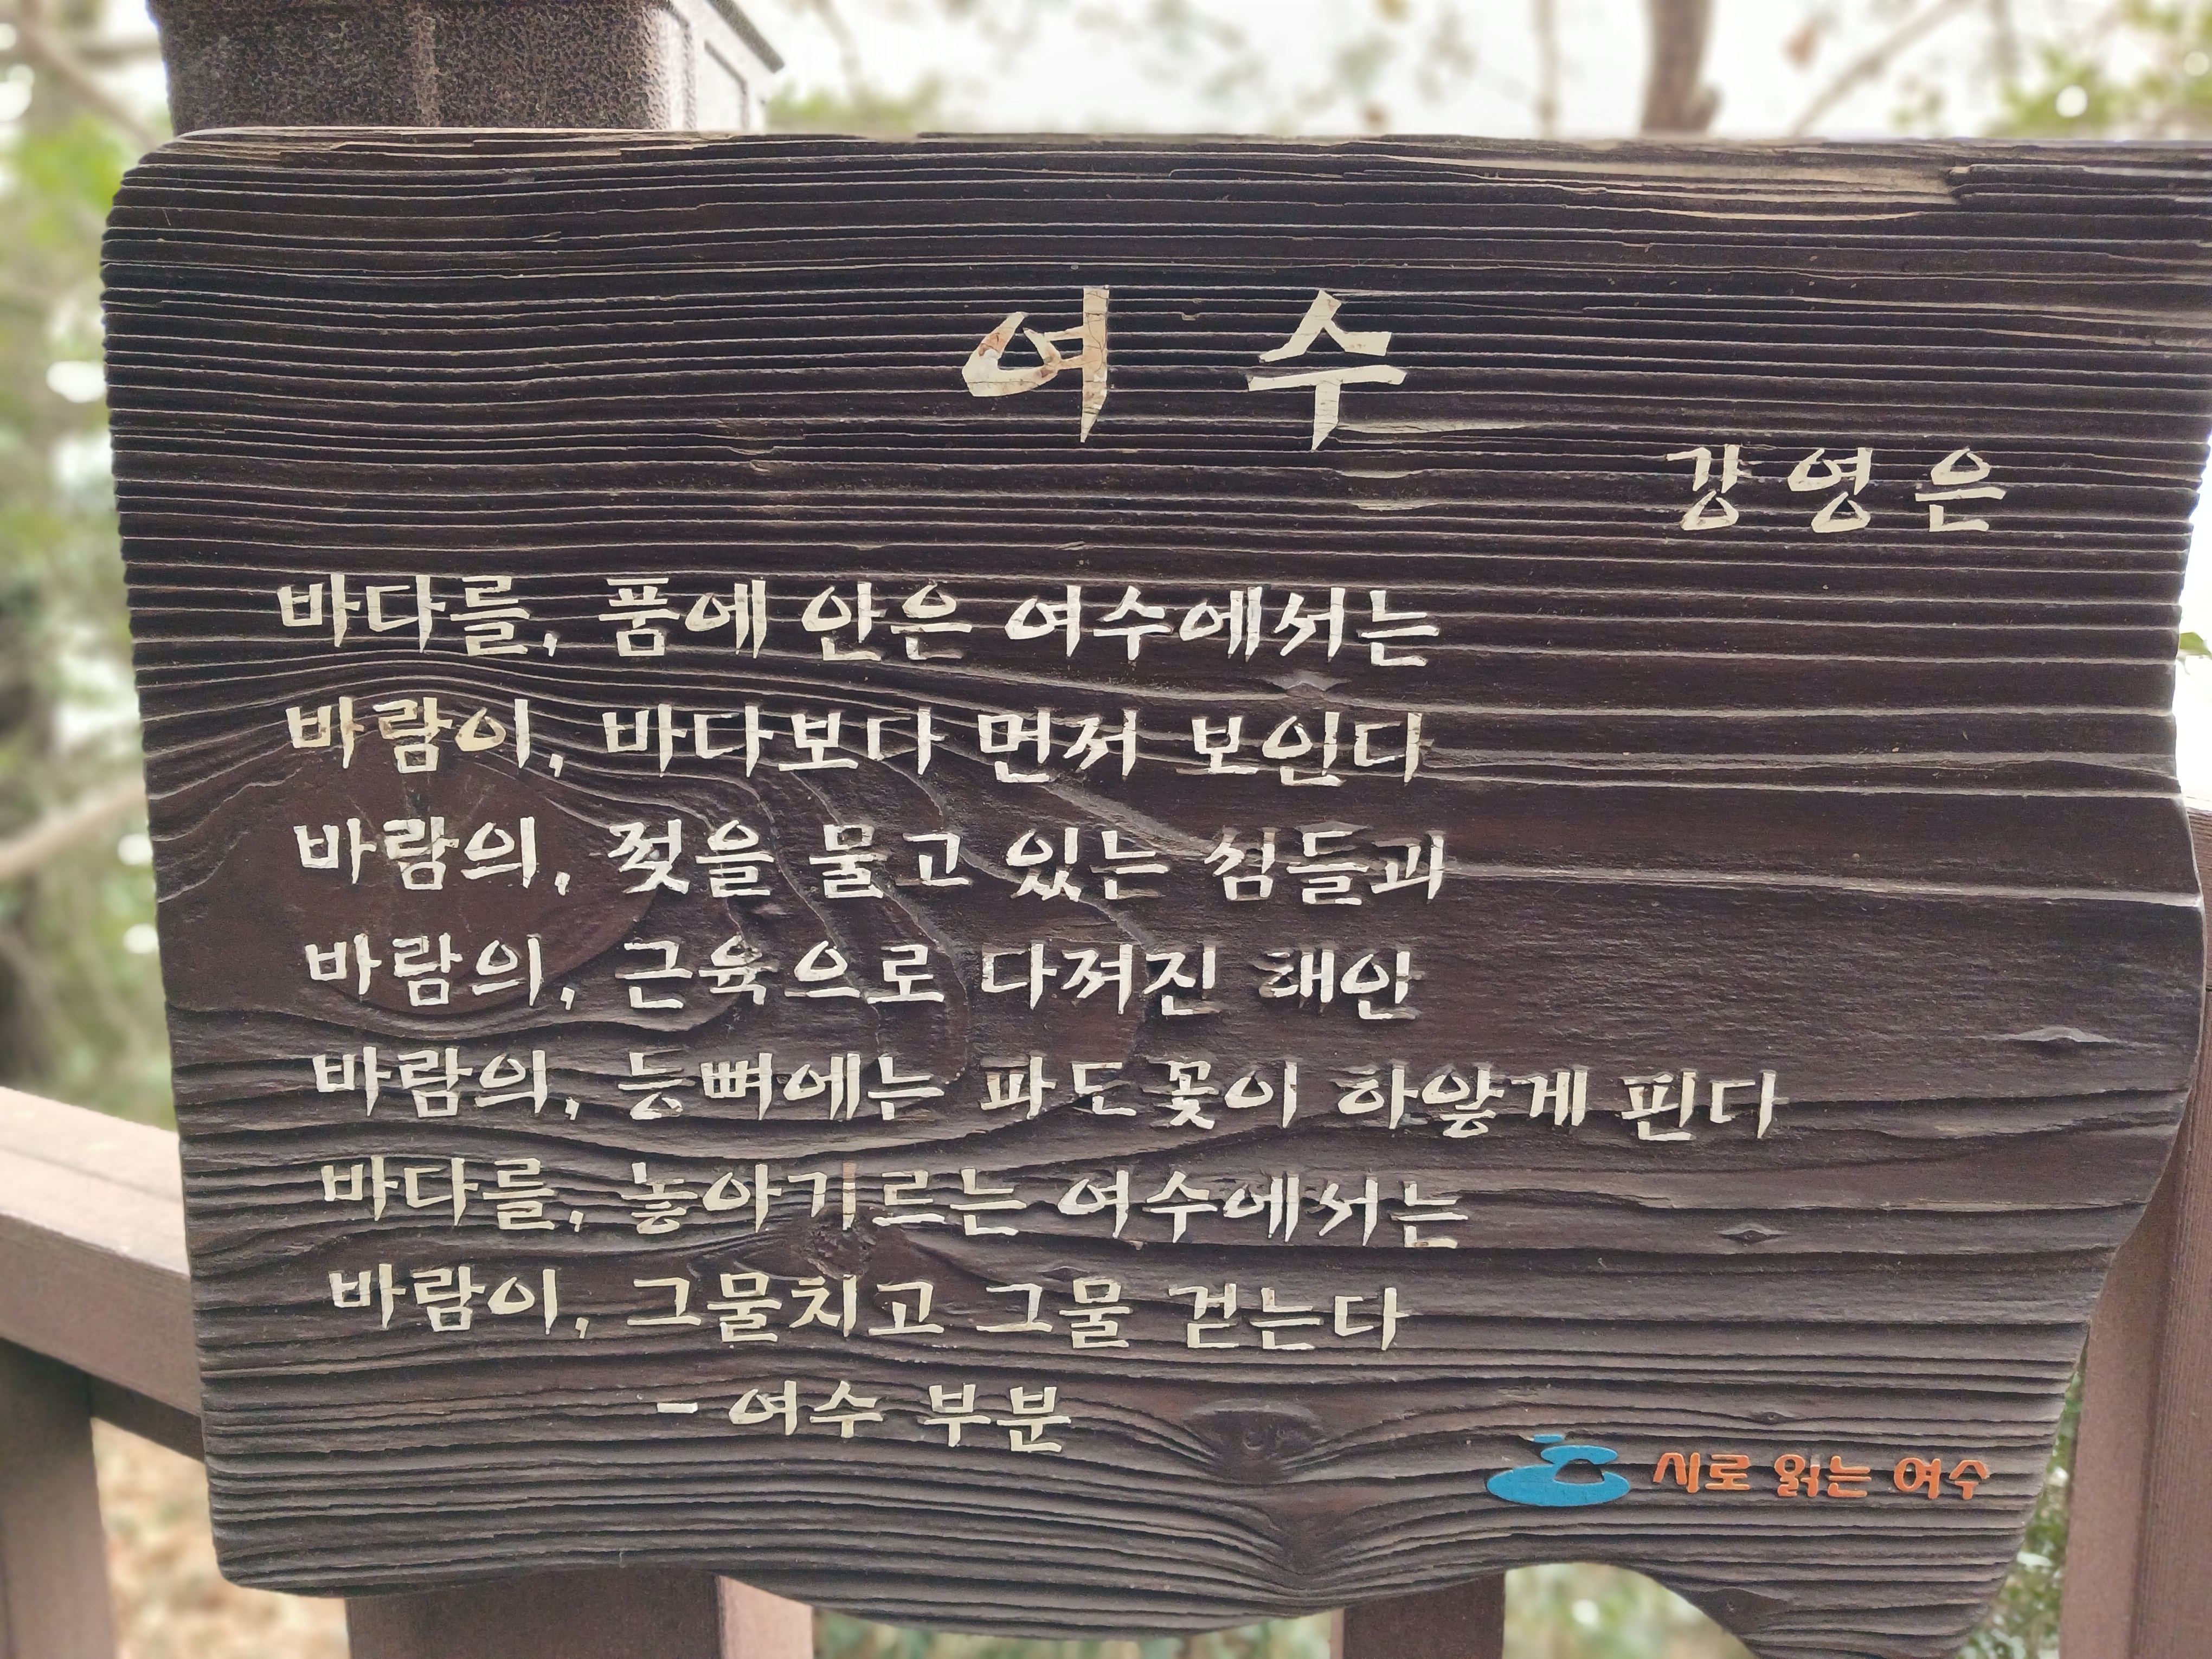 여 수
강영은
바다를, 품에 안은 여수에서는
바람이, 바다보다 먼저 보인다
바람의, 젖을 물고 있는 섬들과
바람의, 근육으로 다져진 해안
바람의, 등뼈에는 파도꽃이 하얗게 핀다
바다를, 놓아기르는 여수에서는
바람이, 그물치고 그물 걷는다
- 여수 부분
시로 읽는 여수